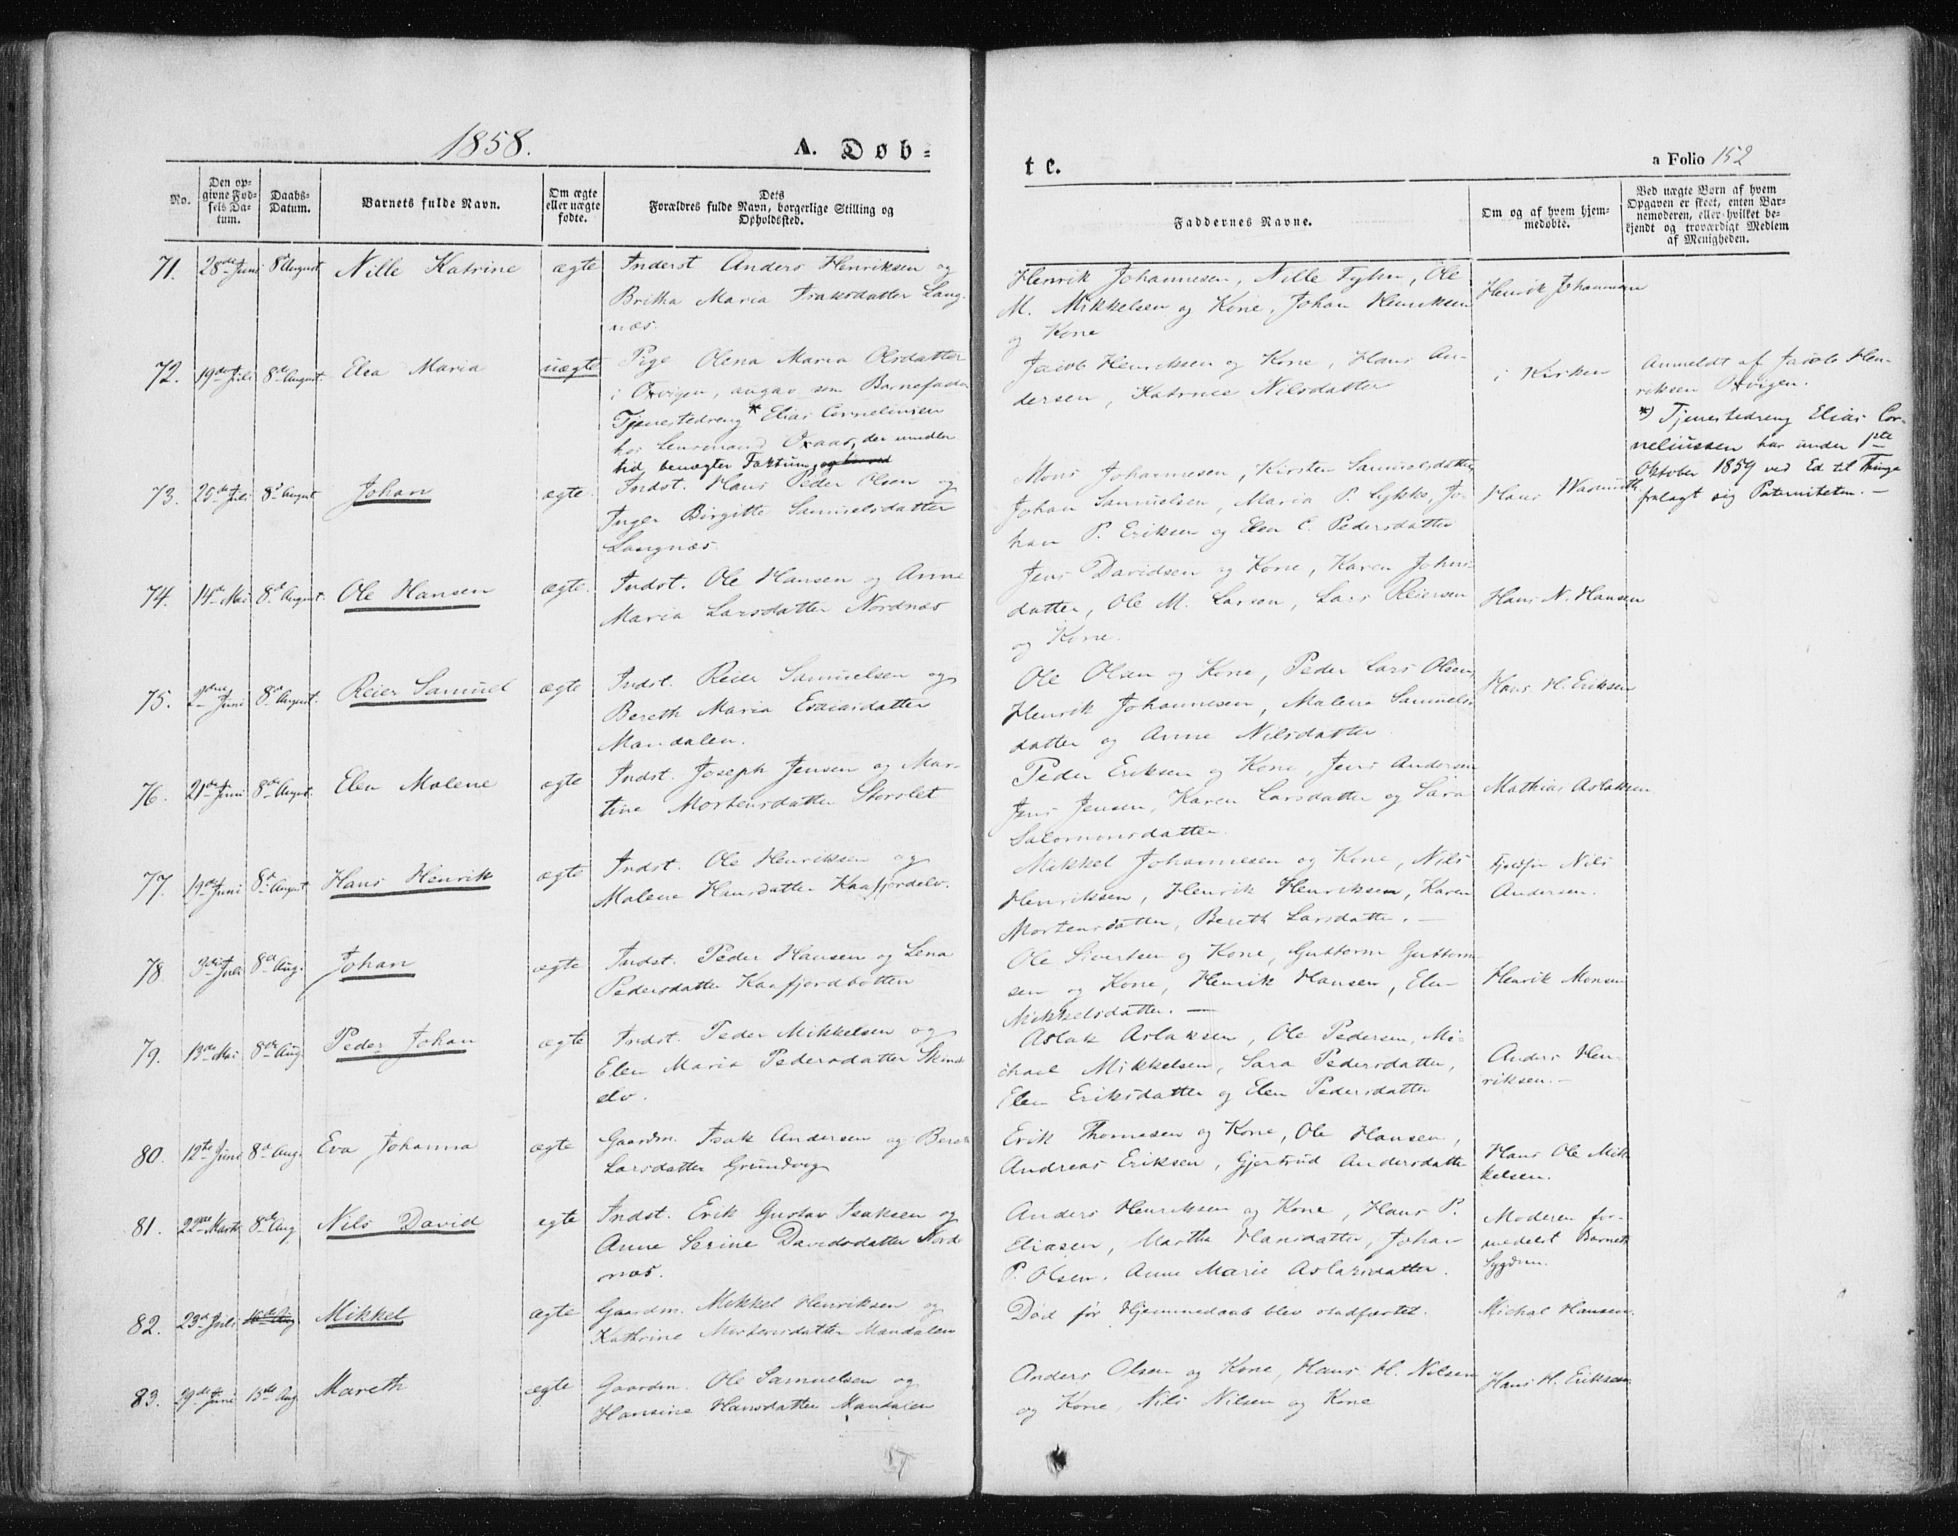 1858.
A. Døb-
te.
a Folio 152
No.
Den op-
givne Fød-
sels Da-
tum.
Daabs-
Datum.
Barnets fulde Navn.
Om ægte
eller uægte
fødte.
Dets
Forældres fulde Navn, borgerlige Stilling og
Opholdssted.
Faddernes Navne.
Om og af hvem hjem-
medøbte.
Ved uægte Born af hvem
Opgaven er skeet, enten Bar-
nemoderen, eller hvilket be-
kjendt og troværdigt Medlem
af Menigheden.
71. 28de Juni 8de August Nille Katrine ægte Inderst Anders Henriksen og
Britha Maria Isaksdatter Lang-
næs.
Henrik Johannesen, Nille Tyhn, Ole
M. Mikkelsen og Kone, Johan Henriksen
og Kone
Henrik Johannesen
72. 19de Juli 8de August. Elea Maria uægte Pige Olena Maria Olsdatter
i Oxvigen, angav som Barnefader
Tjenestedreng * Elias Cornelinsen
hos Oxaas, der imidler
tid, benægter Faktum, og
Jacob Henriksen og Kone, Hans An-
dersen, Katrine Nilsdatter
i Kirken
Anmeldt af Jacob Hen-
riksen Oxvigen.
*) Tjenestedreng Elias Cor-
neliussen har under 1ste
Oktober 1859 ved Ed til Thinge
fralagt sig Paterniteten. —
73. 25de Juli 8de August Johan ægte. Indst. Hans Peder Olsen og
Inger Birgitte Samuelsdatter
Langnæs
Mons Johannesen, Kirsten Samuelsdatter
Johan Samuelsen, Maria P. Lykke, Jo-
han P. Eriksen og Elen C. Pedersdatter
Hans Wasmuth
74. 14de Mai 8de August. Ole Hansen ægte. Indst. Ole Hansen og Anne
Maria Larsdatter Nordnæs
Jens Davidsen og Kone, Karen Johns-
datter, Ole M. Larsen, Lars Reiersen
og Kone.
Hans N. Hansen
75. 2den Juni 8de August. Reier Samuel ægte Indst. Reier Samuelsen og
Bereth Maria Esaiasdatter
Mandalen.
Ole Olsen og Kone, Peder Lars Olsen
Henrik Johannesen, Malena Samuels-
datter og Anne Nilsdatter
Hans H. Eriksen
76. 21de Juni 8de August. Elen Malene ægte Indst. Joseph Jensen og Mar-
tine Mortensdatter Storslet
Peder Eriksen og Kone, Jens Andersen
Jens Jensen, Karen Larsdatter og Sara
Salomonsdatter
Mathias Aslaksen
77. 19de Juni 8de August Hans Henrik ægte Indst. Ole Henriksen og
Malene Hansdatter Kaafjordelv.
Mikkel Johannesen og Kone, Nils
Henriksen, Henrik Henriksen, Karen
Mortensdatter, Bereth Larsdatter. —
Nils
Andersen.
78 3die Juli 8de Aug. Johan ægte Indst. Peder Hansen og Lena
Pedersdatter Kaafjordbotten
Ole Sivertsen og Kone, Guttorm Guttorm
sen og Kone, Henrik Hansen, Elen
Mikkelsdatter. —
Henrik Monsen
79. 13de Mai 8de Aug. Peder Johan ægte Indst. Peder Mikkelsen og
Elen Maria Pedersdatter Skind-
elv.
Aslak Aslaksen, Ole Pedersen, Mi-
chael Mikkelsen, Sara Pedersdatter,
Elen Eriksdatter og Elen Pedersdatter
Anders Hen-
riksen. —
80. 12te Juni 8de Aug. Eva Johanna ægte Gaardm. Isak Andersen og Bereth
Larsdatter Grundvig
Erik Thomesen og Kone, Ole Hansen,
Andreas Eriksen, Gjertrud Andersdatter
Hans Ole Mik-
kelsen.
81. 22de Marts 8de Aug Nils David egte Indst. Erik Gustav Isaksen og
Anne Serine Davidsdatter Nord-
næs.
Anders Henriksen og Kone, Hans P.
Eliasen, Martha Hansdatter, Johan
P. Olsen, Anne Marie Aslaksdatter.
Moderen for-
medelst Barnets
Sygdom.
82. 23de Juli 15de Aug Mikkel ægte Gaardm. Mikkel Henriksen og
Kathrine Mortensdatter Mandalen
Død før Hjemmedaab blev stadfæstet.
Michal Hansen.
83. 29de Juni 15de Aug. Mareth ægte Gaardm. Ole Samuelsen og
Hansine Hansdatter Mandalen
Anders Olsen og Kone, Hans H. Nilsen
og Kone, Nils Nilsen og Kone
Hans H. Eriksen